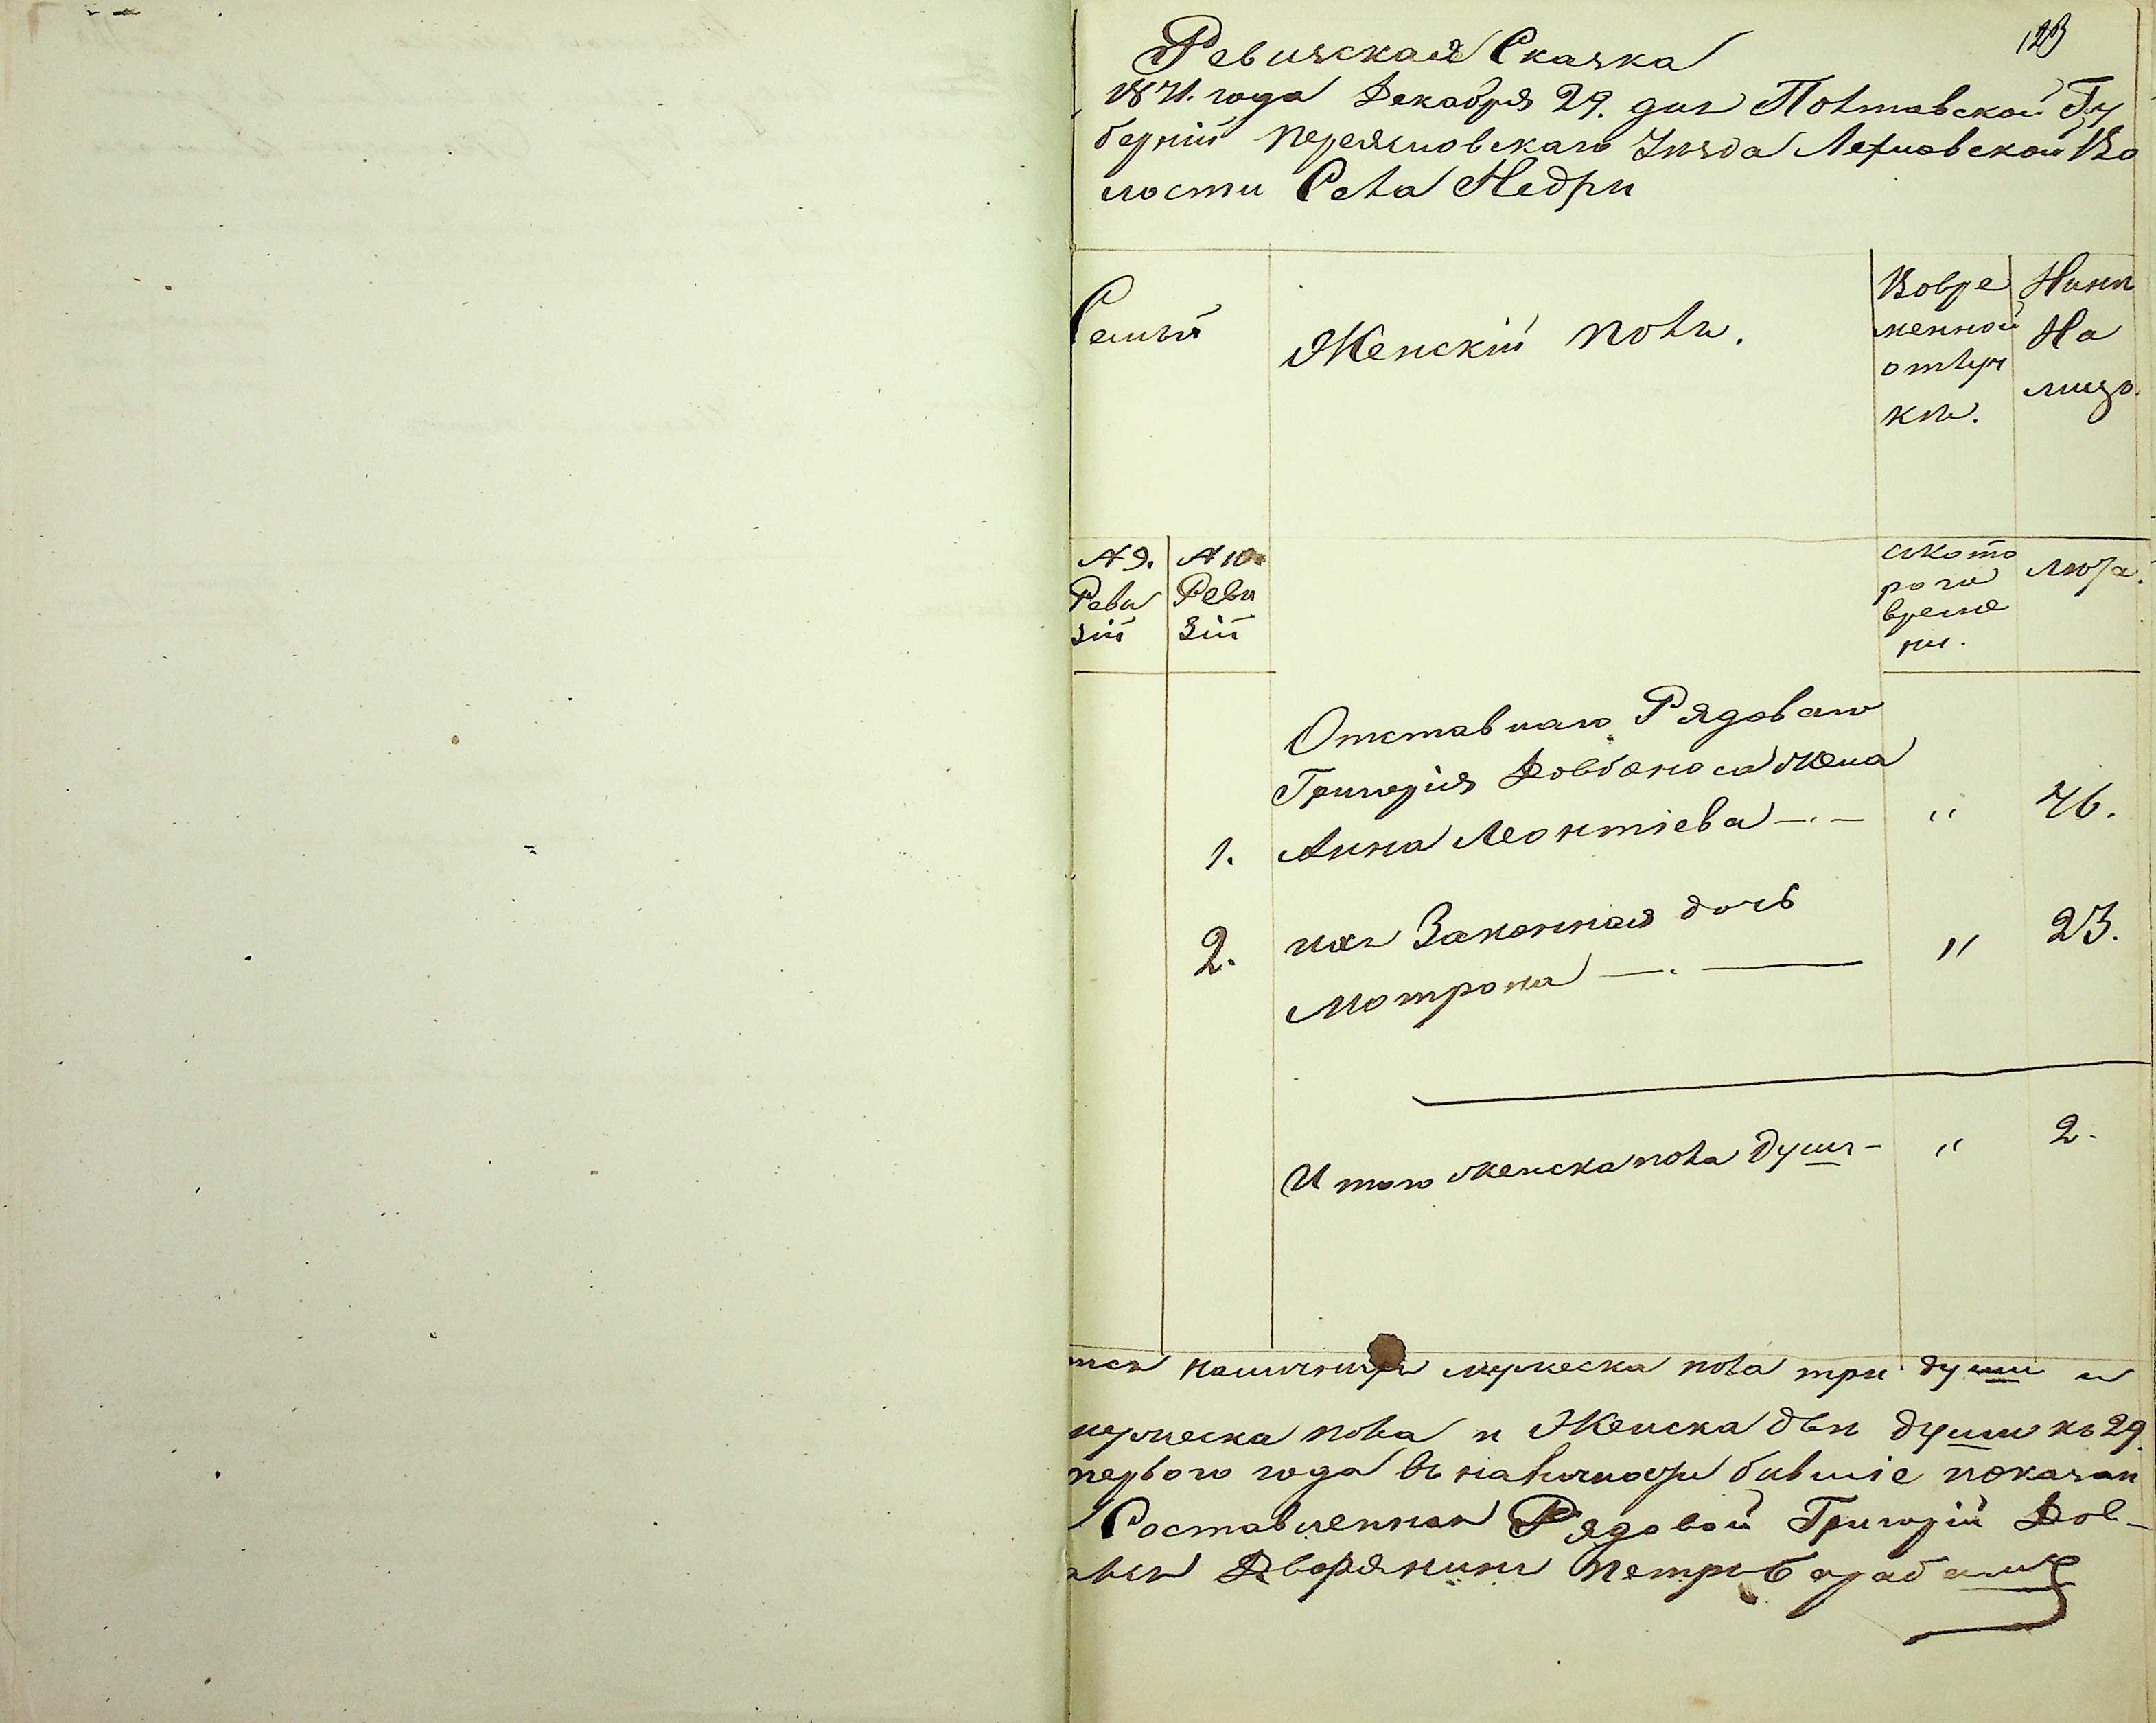 123
Ревизская Сказка
1871. года Декабря 29. дня Полтавской Гу
берніи Переяславскаго Уѣзда Лехновской Во
лости Села Недри
Семьи
Женскій полъ.
Вовре
менной
отлуч
кѣ.
Нынѣ
На
лицо.
№ 9.
Реви
зіи
№ 10
Реви
зіи
ското
раго
време
ни.
лѣта.
Отставнаго Рядоваго
Григорія Довбоноса жена
1. Анна Леонтіева — " 46.
2. ихъ Законная дочь " 23.
Мотрона —
Итого женска пола душъ - " 2.
мужеска пола три души и
мужеска пола и Женска двѣ души къ 29.
перваго года въ наличности бывшіе показан
Рядовой Григорій Дов-
Дворянинъ Петръ